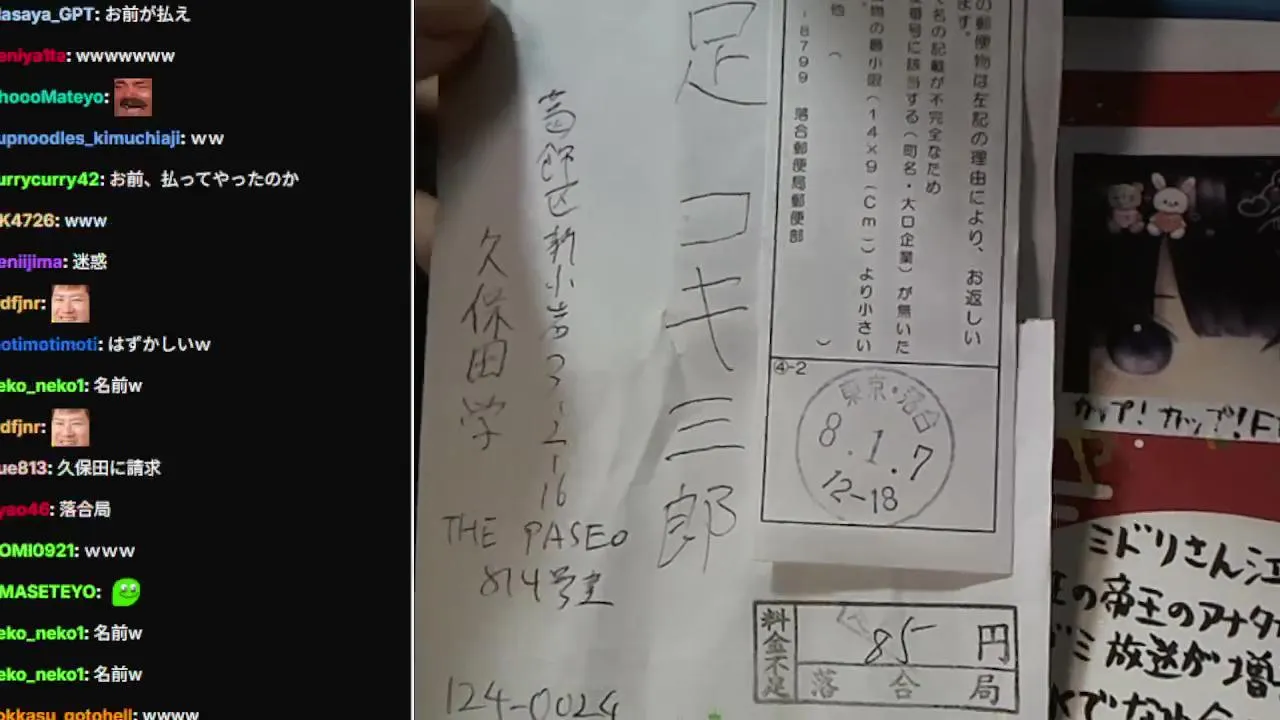 asaya_GPT: お前が払え
eniya1ta: wwwwwww
hoooMateyo:
upnoodles_kimuchiaji: ww
urrycurry42: お前、払ってやったのか
K4726: www
eniijima: 迷惑
dfjnr:
otimotimoti: はずかしいw
eko_neko1: 名前w
dfjnr:
ue813: 久保田に請求
yso46: 落合局
OMI0921: www
MASETEYO:
eko_neko1: 名前w
eko_neko1: 名前w
okkasu_gotohell: wwww
の郵便物は左記の理由により、お返しい
ます。
名の記載が不完全なため
番号に該当する(町名・大口企業)が無いた
物の最小限(14×9(Cm)より小さい
他 ( )
-8799 落合郵便局郵便部
④-2
東京・落合
8.1.7
12-18
足 コキ三郎
葛飾区新小岩2-2-16
THE PASEO
814号室
久保田学
124-0024
料金不足
85円
落合局
カップ!カップ!F
ミドリさん江
の帝王のアナタ
ミ放送が増